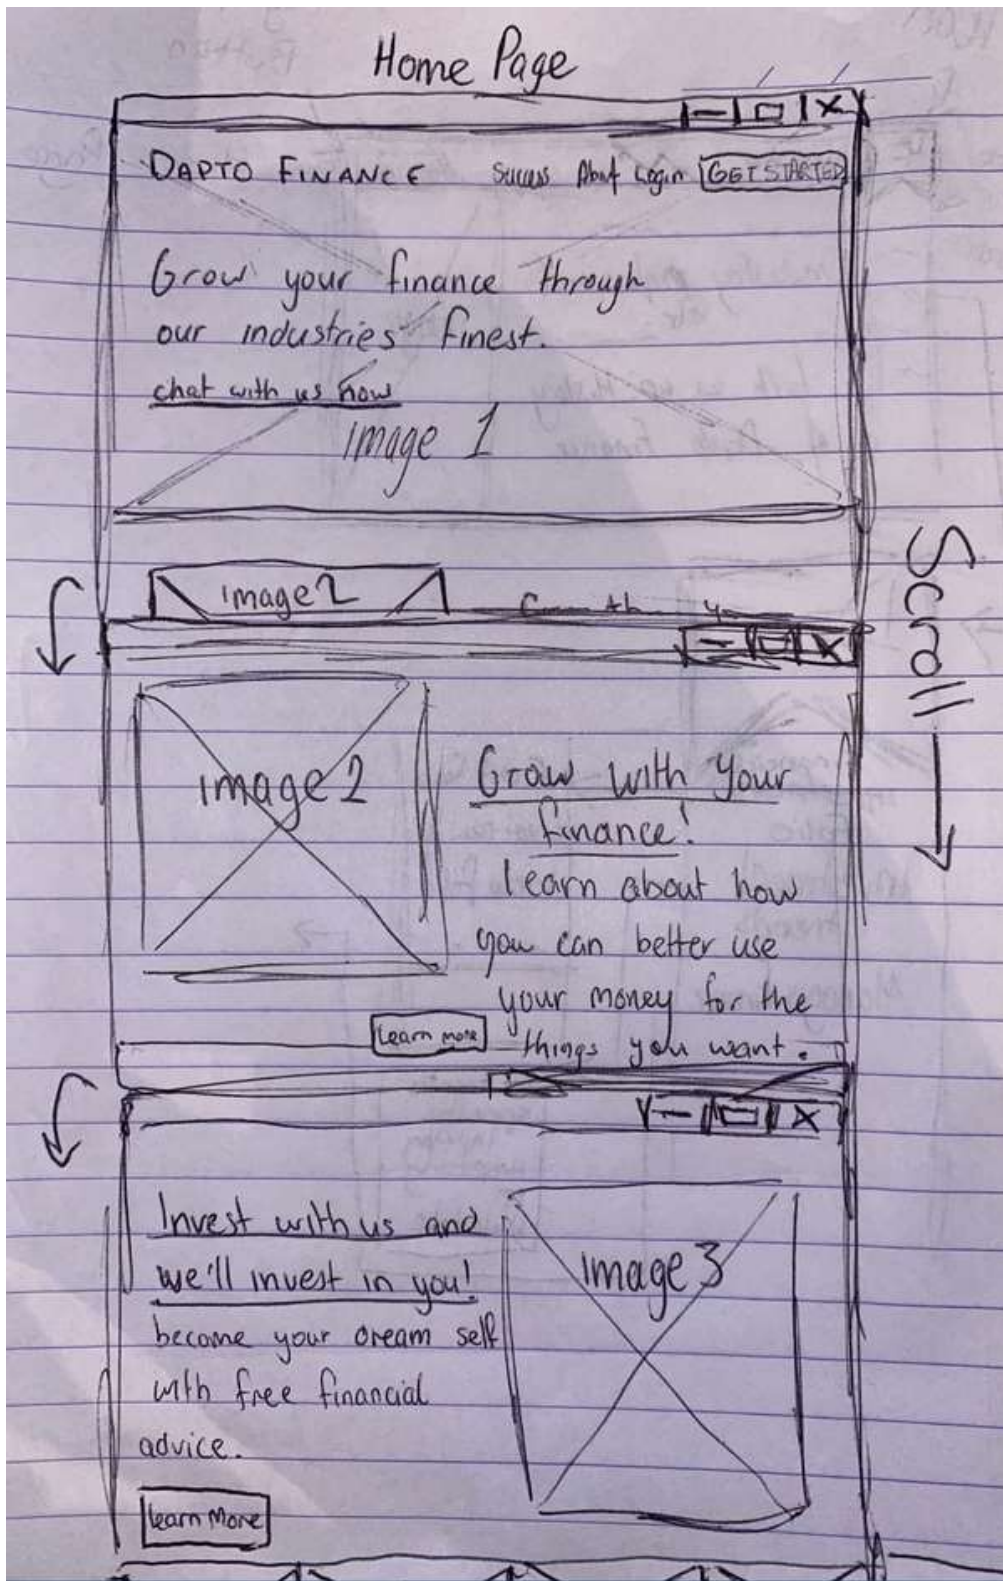 Home Page
DAPTO FINANCE Success About Login GET STARTED
Grow your finance through
our industries finest.
chat with us now
image 1
image 2
Scroll
image 2
Grow with your
finance!
learn about how
you can better use
your money for the
things you want.
Learn more
Invest with us and
we'll invest in you!
become your dream self
with free financial
advice.
image 3
Learn More